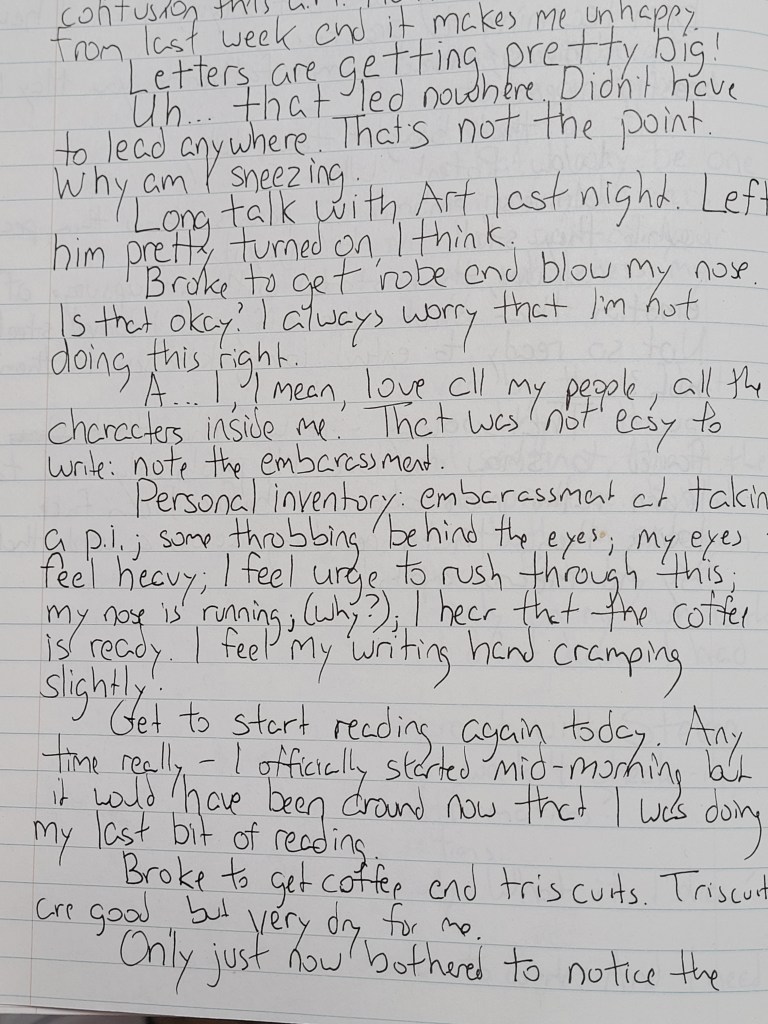 confusion this a.m.
from last week and it makes me unhappy.
Letters are getting pretty big!
Uh... that led nowhere. Didn't have
to lead anywhere. That's not the point.
Why am I sneezing.
Long talk with Art last night. Left
him pretty turned on, I think.
Broke to get robe and blow my nose.
Is that okay? I always worry that I'm not
doing this right.
A... I, I mean, love all my people, all the
characters inside me. That was not easy to
write: note the embarassment.
Personal inventory: embarassment at takin
a p.i.; some throbbing behind the eyes; my eyes
feel heavy; I feel urge to rush through this;
my nose is running; (why?); I hear that the coffee
is ready. I feel my writing hand cramping
slightly.
Get to start reading again today. Any
time really – I officially started mid-morning but
it would have been around now that I was doing
my last bit of reading.
Broke to get coffee and triscuits. Triscuit
are good but very dry for me.
Only just now bothered to notice the